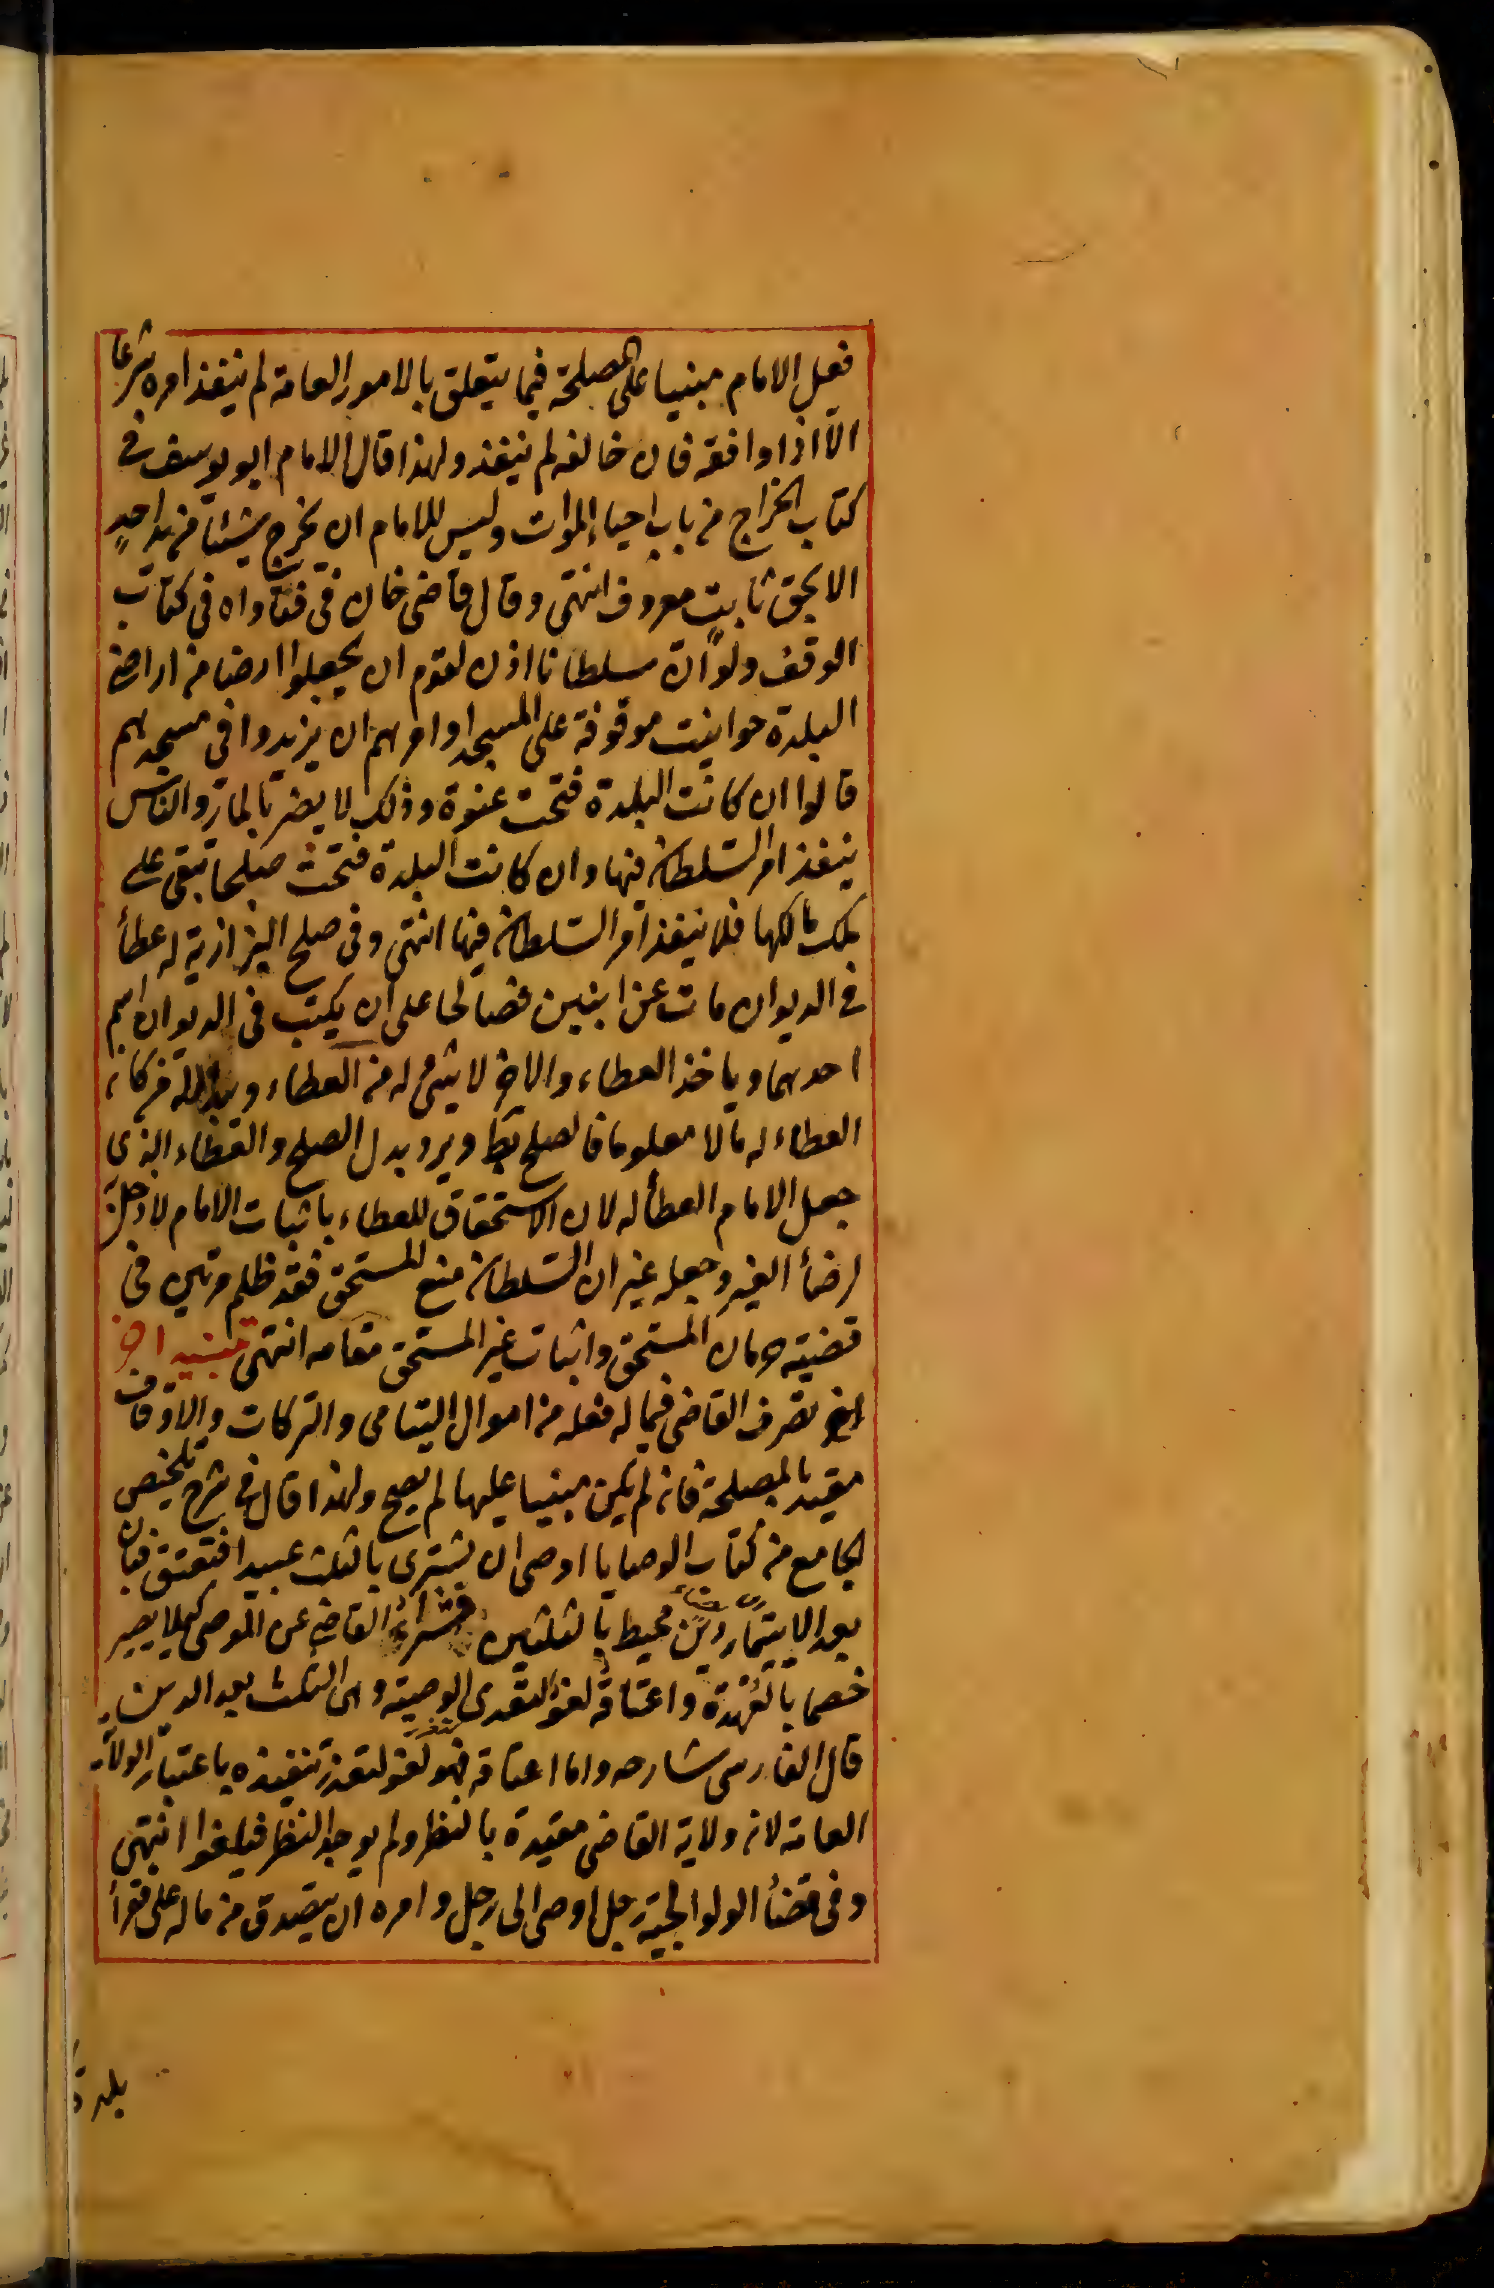 فعل الامام مبنيا على المصلحة فيما يتعلق بالامور العامة لم ينفذ امره شرعا
الا اذا وافقه فان خالفه لم ينفذ ولهذا قال الامام ابو يوسف في
كتاب الخراج من باب احياء الموات وليس للامام ان يخرج شيئا من يد احدٍ
الا بحق ثابت معروف انتهى وقال قاضى خان فى فتاواه فى كتاب
الوقف ولو ان سلطانا اذن لقوم ان يجعلوا ارضا من اراضى
البلدة حوانيت موقوفة على المسجد او امرهم ان يزيدوا فى مسجدهم
قالوا ان كانت البلدة فتحت عنوة وذلك لا يضر بالمار والناس
ينفذ امر السلطان فيها وان كانت البلدة فتحت صلحا تبقى على
ملك مالكها فلا ينفذ امر السلطان فيها انتهى وفى صلح البزازية له عطأ
فى الديوان مات عن ابنين فصالحا على ان يكتب فى الديوان اسم
احدهما وياخذ العطاء والاخر لا شئ له من العطاء ويبذل له من كان
العطاء له مالا معلوما فالصلح بط ويرد بدل الصلح والعطاء الذى
جعل الامام العطأ له لان الاستحقاق للعطاء باثبات الامام لا دخل
لرضأ الغير وجعله غير ان السلطان منع المستحق فقد ظلم مرتين فى
قضيته حرمان المستحق واثبات غير المستحق مقامه انتهى تنبيه اخر
تصرف القاضى فيما له فعله من اموال اليتامى والتركات والاوقاف
مقيد بالمصلحة فان لم يكن مبنيا عليها لم يصح ولهذا قال فى شرح تلخيص
الجامع من كتاب الوصايا اوصى ان يشترى بالثلث عبيدا فتعتق فبان
بعد الايتمار دين محيط بالثلثين فشراء القاضى عن الموصى كيلا يصير
خصما بالعهدة واعتاقه لغو لتعدى الوصية وهى الثلث بعد الدين
قال الفارسى شارحه واما اعتاقه فهو لغو لتعذر تنفيذه باعتبار الولاية
العامة لان ولاية القاضى مقيدة بالنظر ولم يوجد النظر فيلغوا انتهى
وفى قضأ الولوالجية رجل اوصى الى رجل وامره ان يتصدق من ماله على فقرأ
بلدة